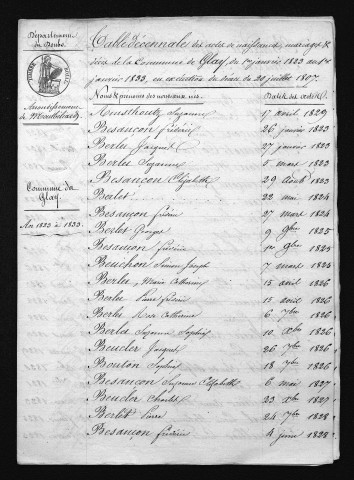 Département
du Doubs.
Arrondissement
de Montbéliard
Commune de
Glay.
An 1823 à 1833.
Table décennale des actes de naissances, mariages &
décès de la Commune de Glay, du 1er janvier 1823 au 1er
janvier 1833, en exécution du décret du 20 juillet 1807.
Noms & prénoms des nouveaux nés. Dates des actes.
Suzanne 17 avril 1829
Besançon Frédéric 26 janvier 1823
Berlet Jacques 27 janvier 1823
Berlet Suzanne 5 mars 1823
Besançon Elisabeth 29 Août 1823
Berlet 22 mai 1824
Besançon 27 mars 1824
Berlet Georges 9 9bre 1825
Besançon Frédéric 9bre 1825
Bouchon Simon Joseph 7 mars 1825
Berlet, Marie Catherine 15 avril 1826
Berlet Pierre Frédéric 15 avril 1826
Berlet Catherine 6 7bre 1826
Berlet Suzanne Sophie 10 Xbre 1826
Beucler Jacques 26 1826
Bouton Sophie 18 7bre 1826
Besançon Suzanne Elisabeth 6 mai 1827
Beucler Charles 23 Xbre 1827
Berlet Pierre 24 7bre 1828
Besançon Frédéric 4 juin 1828